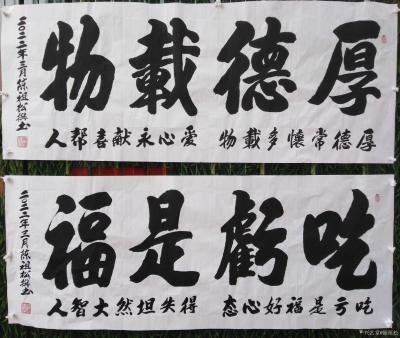 厚德載物
厚德常懷多載物 愛心永献喜帮人
二〇二二年三月陈祖松撰书
吃虧是福
吃亏是福好心态 得失坦然大智人
二〇二二年三月陈祖松撰书